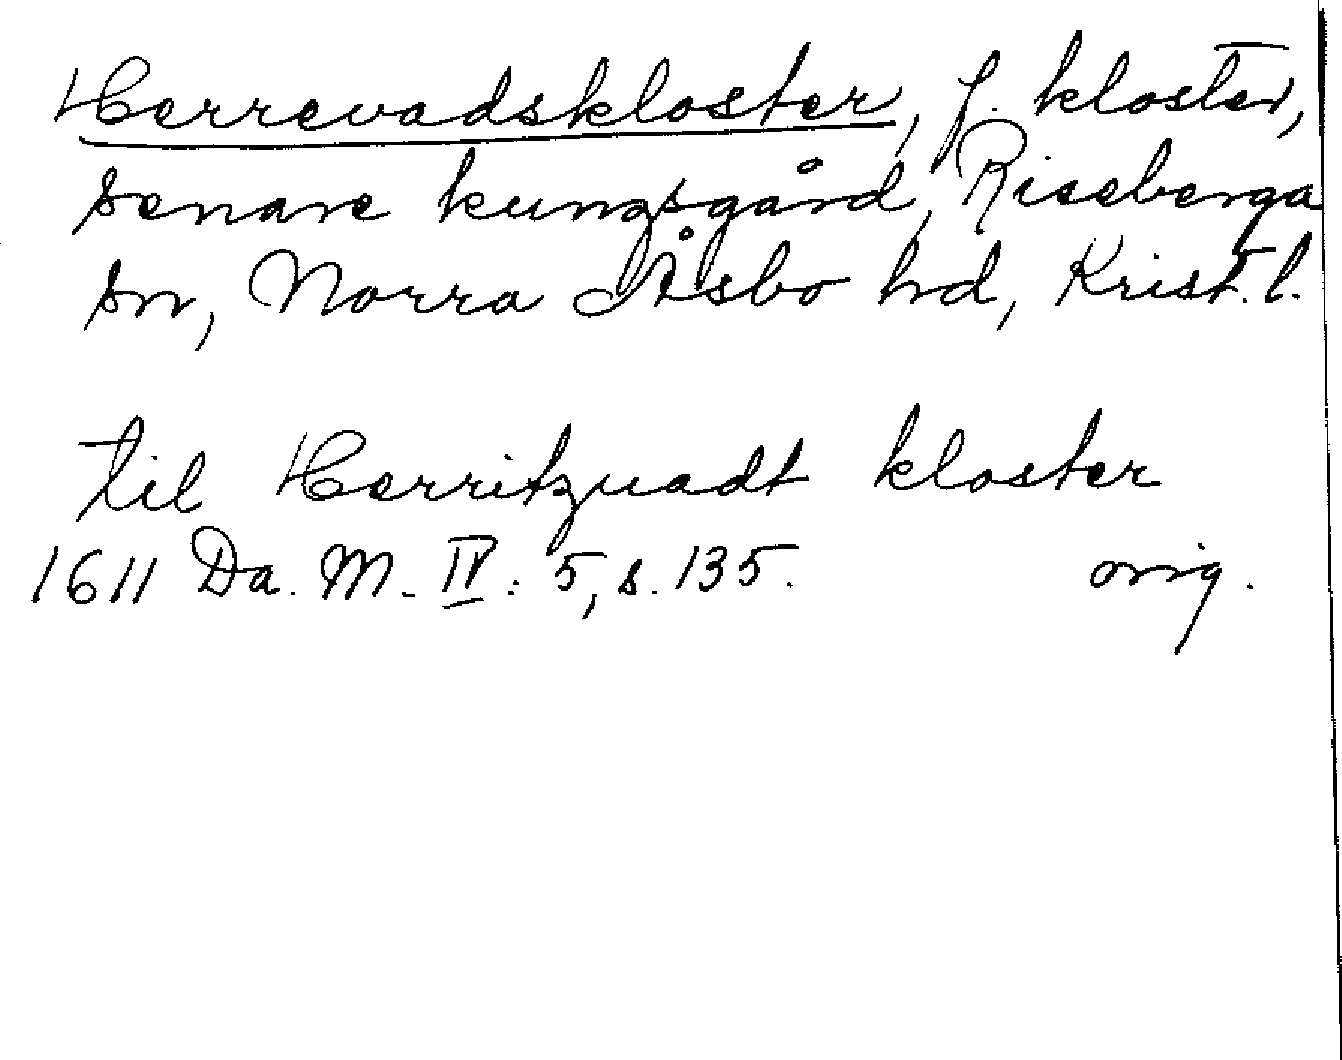 Herrevadskloster, f. kloster,
senare kungsgård, Riseberga
sn, Norra Åsbo hd, Krist. l.
til Herritzuadt kloster
1611 Da. M. IV: 5, s. 135. orig.